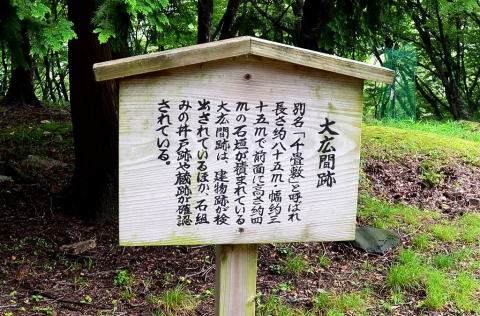 大広間跡
別名「千畳敷」と呼ばれ
長さ約八十五m・幅約三
十五mで前面に高さ約四
mの石垣が積まれている
大広間跡は、建物跡が検
出されているほか、石組
みの井戸跡や橋跡が確認
されている。